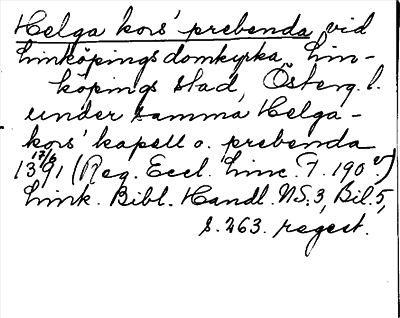 Helga kors' prebenda vid
Linköpings domkyrka, Lin-
köpings stad, Österg. l.
under samma Helga-
kors' kapell o. prebenda
13 17/6 91 (Reg. Eccl. Linc. T. 190 v)
Link. Bibl. Handl. N.S. 3, Bil. 5,
s. 263. regest.